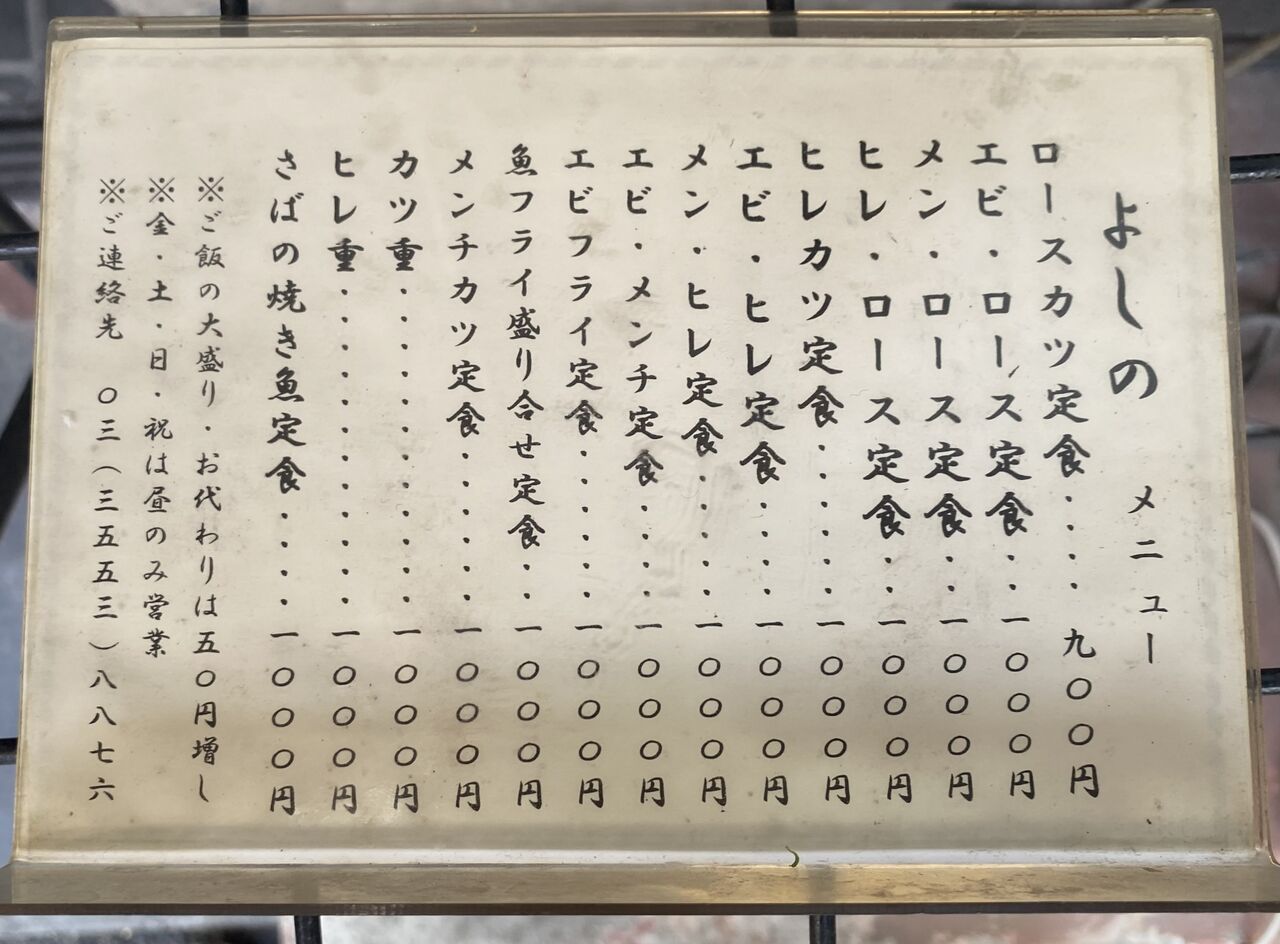 よしの メニュー
ロースカツ定食・・・・九〇〇円
エビ・ロース定食・・一〇〇〇円
メン・ロース定食・・一〇〇〇円
ヒレ・ロース定食・・一〇〇〇円
ヒレカツ定食・・・・一〇〇〇円
エビ・ヒレ定食・・・一〇〇〇円
メン・ヒレ定食・・・一〇〇〇円
エビ・メンチ定食・・一〇〇〇円
エビフライ定食・・・・一〇〇〇円
魚フライ盛り合せ定食・・一〇〇〇円
メンチカツ定食・・・・一〇〇〇円
カツ重・・・・・・・・・・・・一〇〇〇円
ヒレ重・・・・・・・・・・・・一〇〇〇円
さばの焼き魚定食・・・・一〇〇〇円
※ご飯の大盛り・お代わりは五〇円増し
※金・土・日・祝は昼のみ営業
※ご連絡先 〇三(三五五三)八八七六